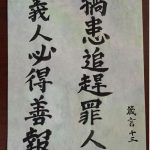 禍患追趕罪人
義人必得善報
箴言十三